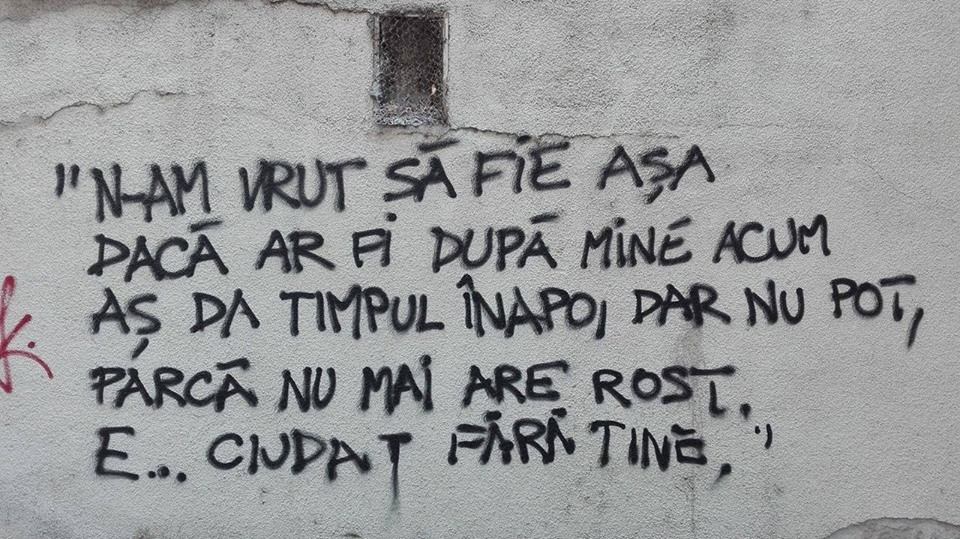 "N-AM VRUT SĂ FIE AȘA
DACĂ AR FI DUPĂ MINE ACUM
AȘ DA TIMPUL ÎNAPOI DAR NU POT,
PARCĂ NU MAI ARE ROST.
E... CIUDAT FĂRĂ TINE."